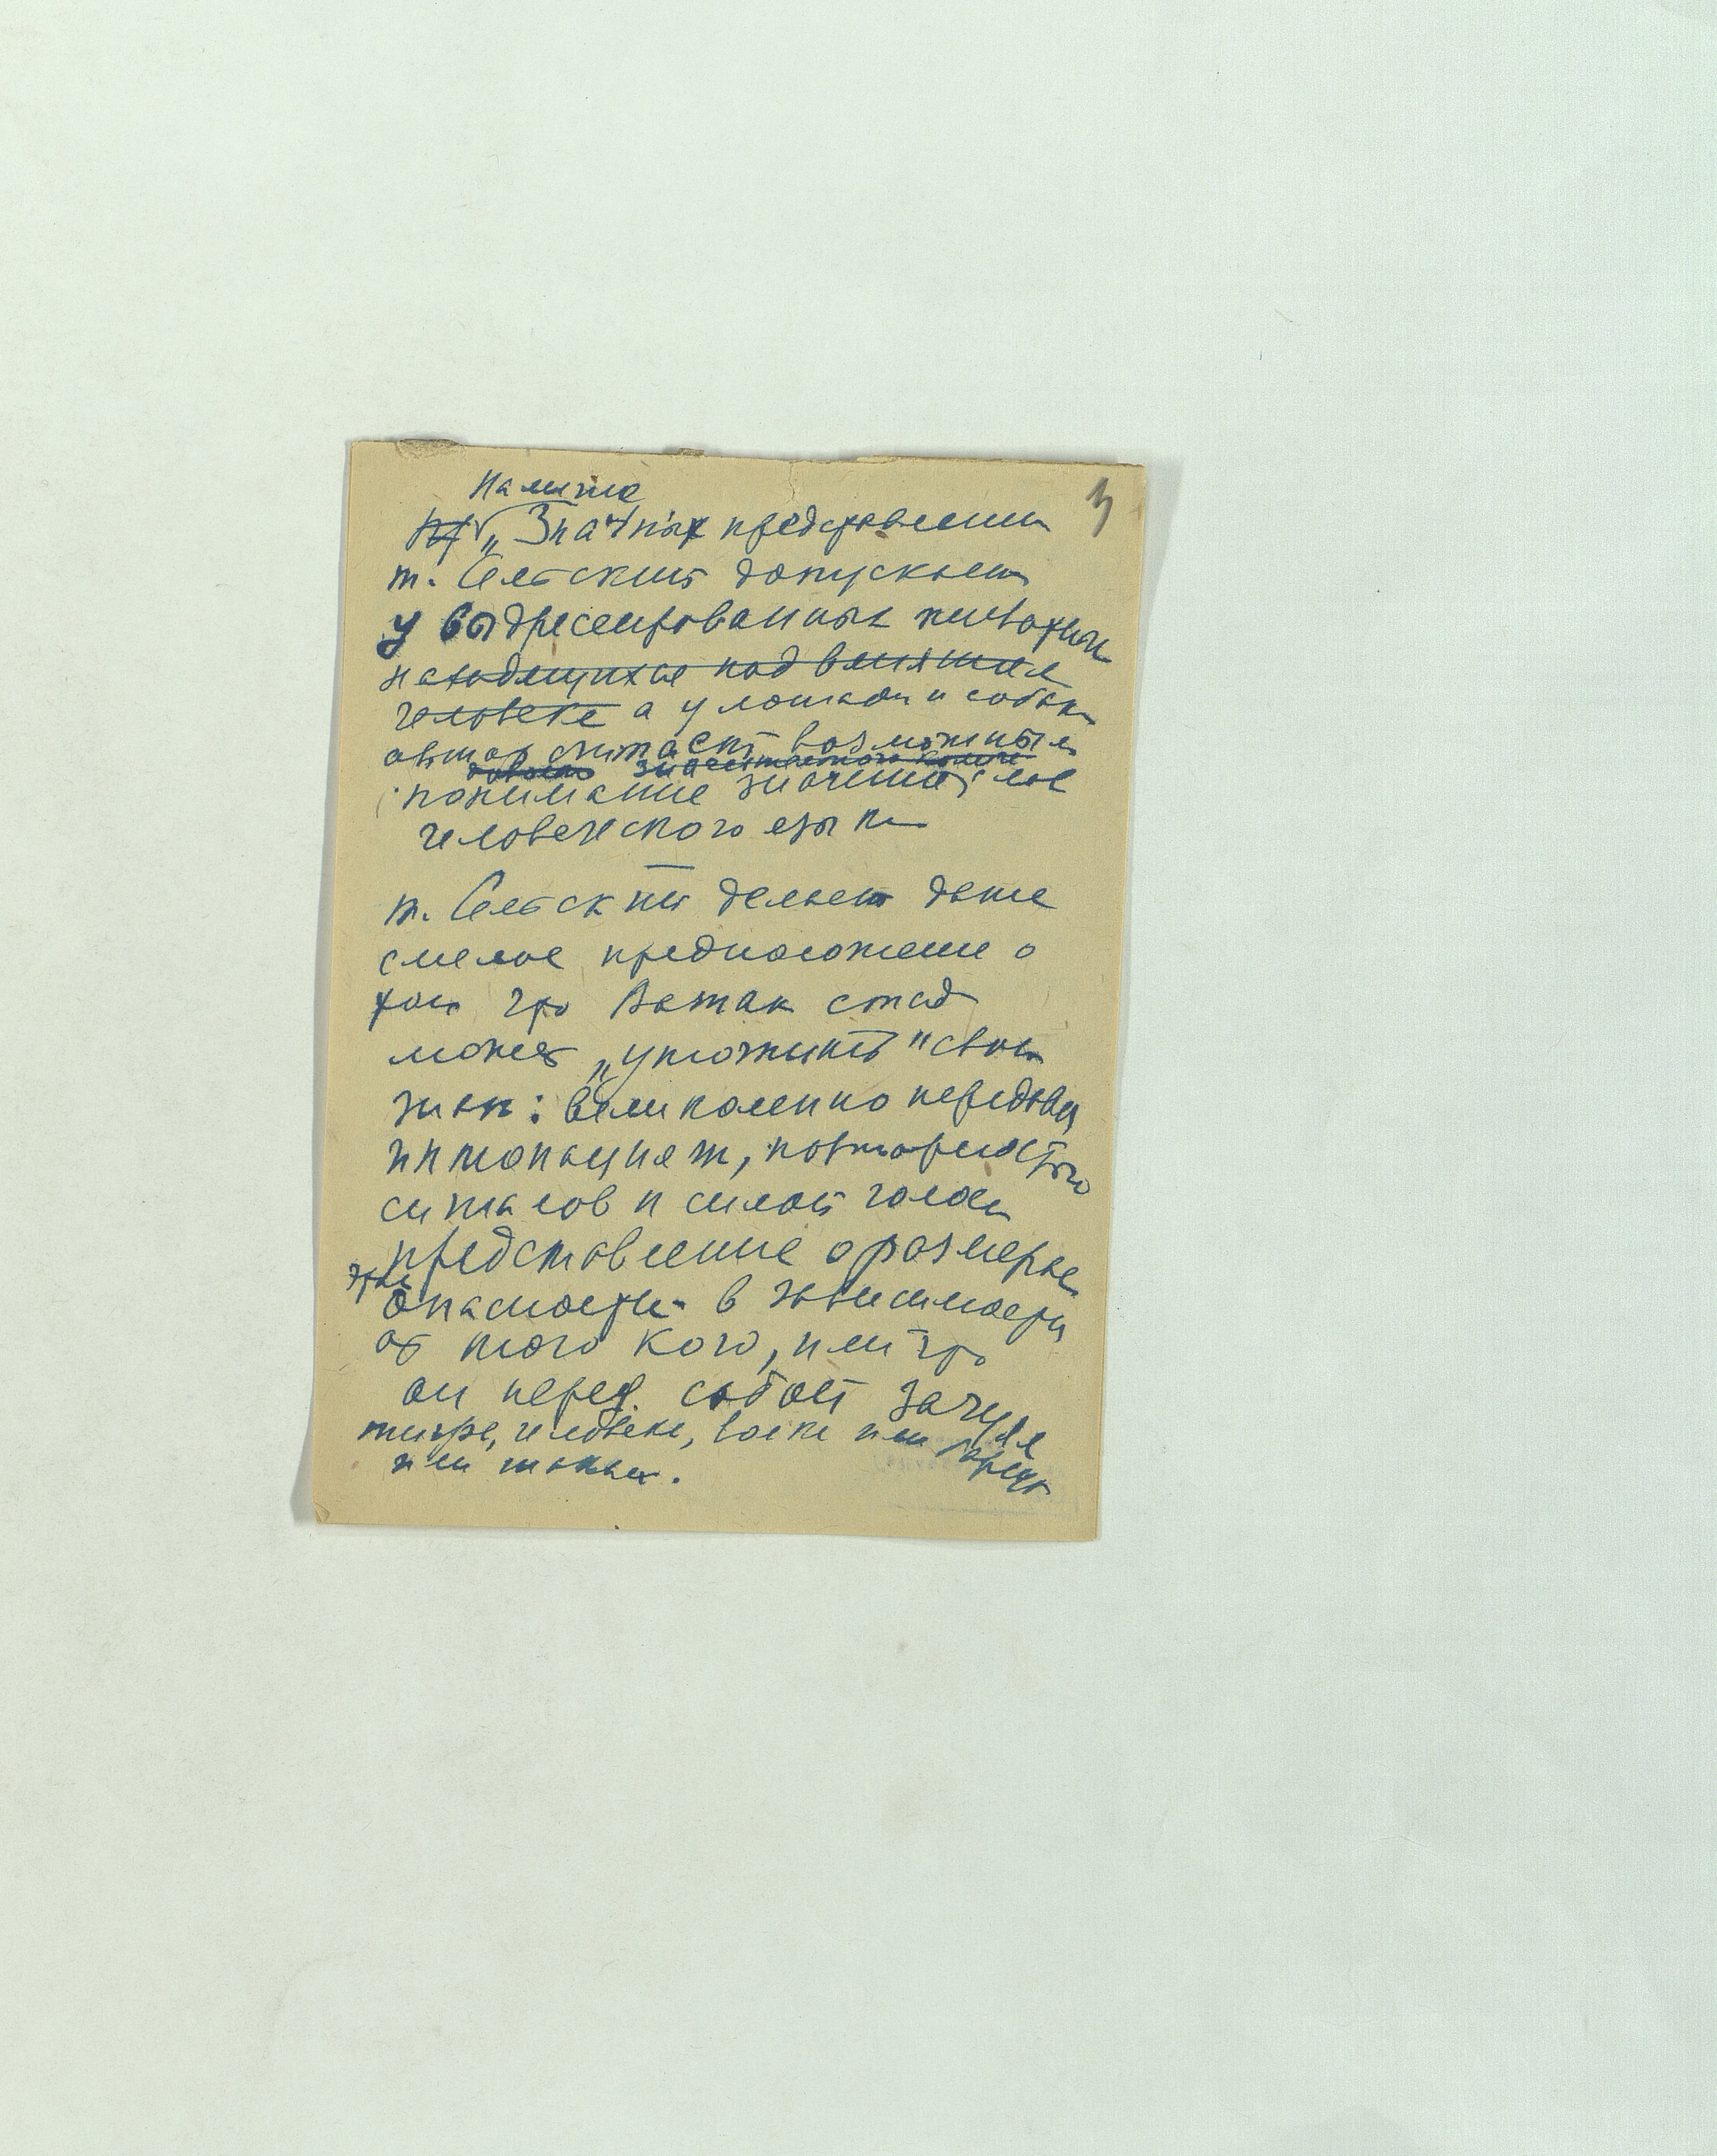 Наличие
3
„Значных представлении
т. Сельский допускает
у выдресеированных животных
находящихся под влиянием
человека а у лошади и собаки
автор считает возможным
значительного
понимание значений слов
человеческого языка
т. Сельский делает даже
смелое предположение о
том что Вожак стад
может „уточнить" свои
знак: великолепно передавая
интонацией, повторяемостью
сигналов и силой голоса
представление о размерах
опасности в зависимости
от того кого, или что
он перед собой зачуял
тигра, человека, волка или
или шакала.